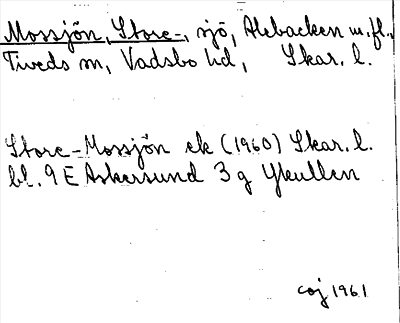 Mossjön, Store-, sjö, Alebacken m.fl.,
Tiveds sn, Vadsbo hd, Skar. l.
Store-Mossjön ek (1960) Skar. l.
bl. 9E Askersund 3g Ykullen
coj 1961